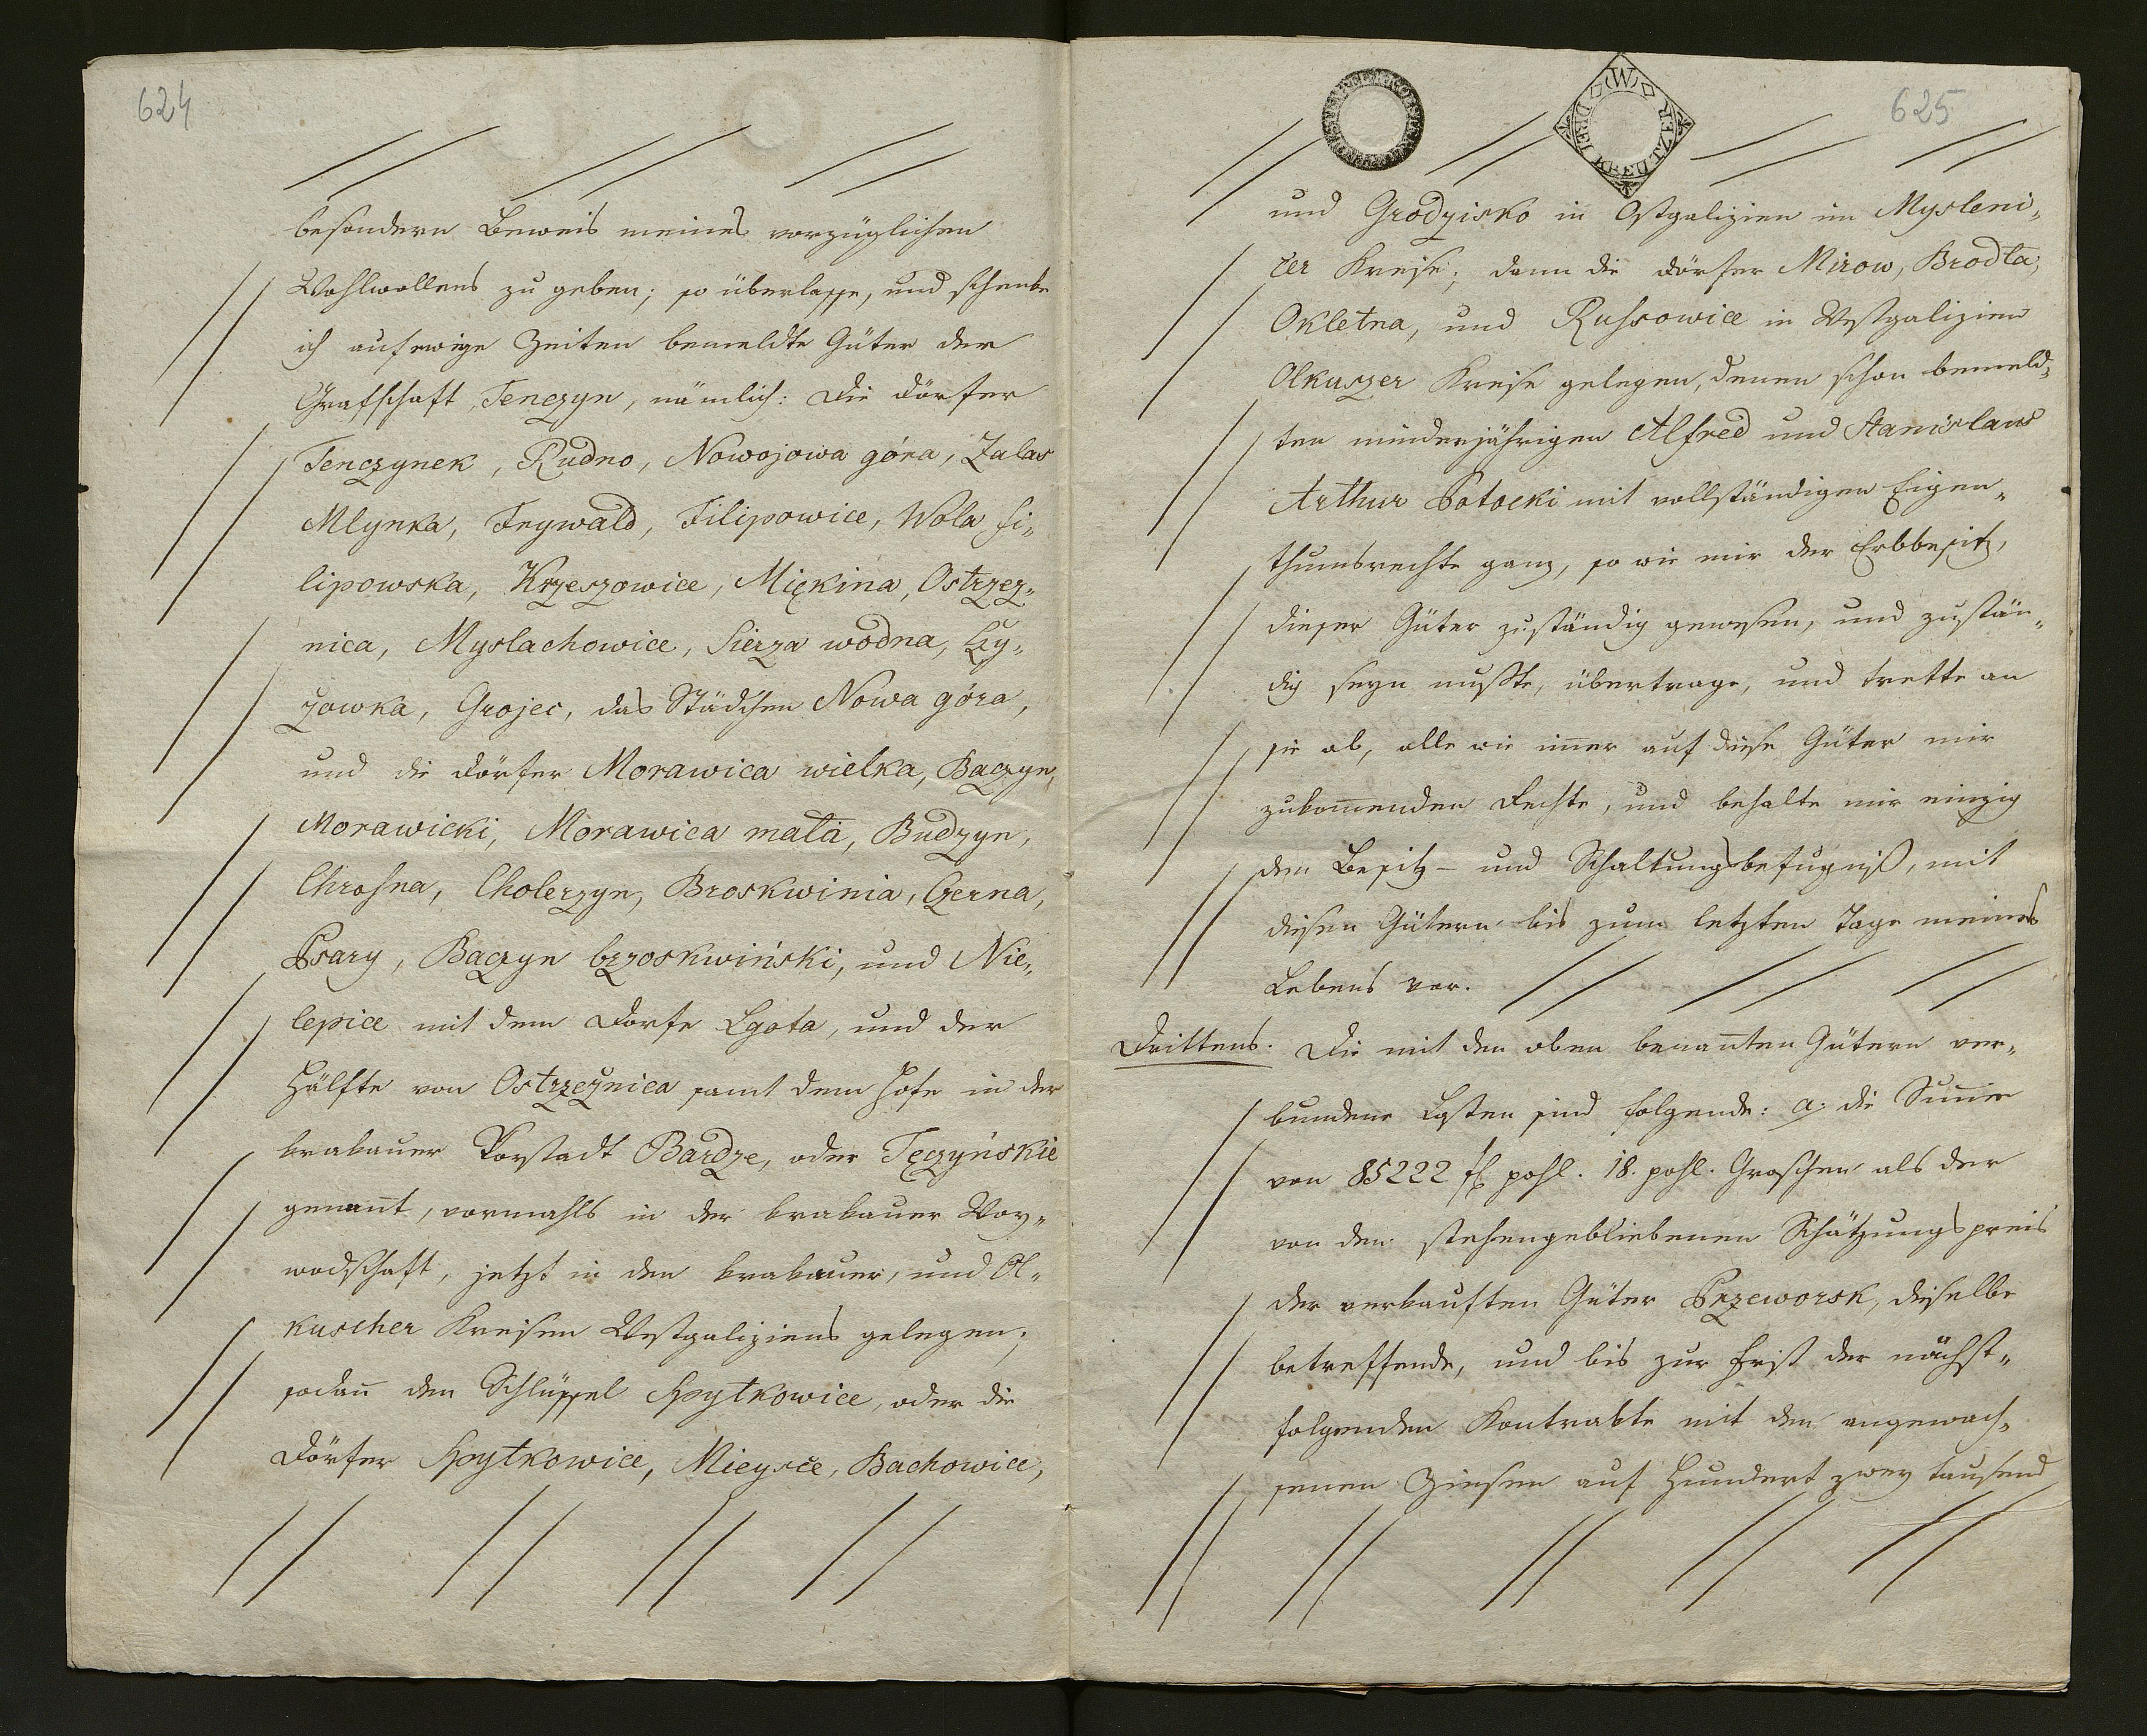 624
besondern Beweis meines vorzüglichen
Wohlwollens zu geben; so überlasse, und schenke
ich auf ewige Zeiten bemeldte Güter der
Grafschaft Tenczyn, nämlich: die Dörfer
Tenczynek, Rudno, Nowojowa góra, Zalas
Mlynka, Frywald, Filipowice, Wola fi„
lipowska, Krzeszowice, Miękina, Ostrzez„
nica, Myslachowice, Sierza wodna, Czy„
zowka, Grojec, das Städchen Nowa góra,
und die Dörfer Morawica wielka, Baczyn,
Morawicki, Morawica mała, Budzyn,
Chrosna, Cholerzyn, Broskwinia, Czerna,
Psary, Baczyn brzoskwiński, und Nie„
lepice mit dem Dorfe Lgota, und der
Hälfte von Ostrzeżnica samt dem Hofe in der
krakauer Vorstadt Bardze, oder Tęczyńskie
genan̄t, vormahls in der krakauer Woy„
wodschaft, jetzt in den krakauer, und Ol„
kuscher Kreisen Westgaliziens gelegen;
sodan̄ den Schlüssel Spytkowice, oder die
Dörfer Spytkowice, Mieysce, Bachowice,
DREI KREUTZER (W)
625
und Grodzisko in Ostgalizien im Mysleni„
cer Kreise; dann die Dörfer Mirow, Brodła,
Okletna, und Russowice in Westgalizien
Olkuszer Kreise gelegen, denen schon bemeld„
ten minderjährigen Alfred und Stanislaus
Arthur Potocki mit vollständigen Eigen„
thumsrechte ganz, so wie mir der Erbbesitz,
dieser Güter zuständig gewesen, und zustän„
dig seyn mußte, übertrage, und trette an
sie ab, alle wie im̄er auf diese Güter mir
zukom̄enden Rechte, und behalte mir einzig
den Besitz- und Schaltungsbefugniß, mit
diesen Gütern bis zum letzten Tage meines
Lebens vor.
Drittens. Die mit den oben benan̄ten Gütern ver„
bundene Lasten sind folgende: a. die Sum̄e
von 85222 f pohl. 18. pohl. Groschen als der
von den stehengebliebenen Schätzungspreis
der verkauften Güter Przeworsk, dieselbe
betreffende, und bis zur Frist der nächst„
folgenden Kontrakte mit den angewach„
senen Zinsen auf Hundert zwey tausend